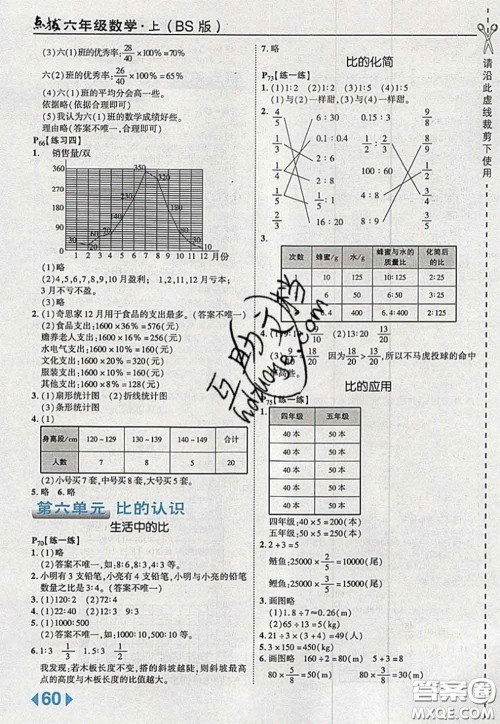 点拨 六年级数学·上(BS版)
(3)六(1)班的优秀率:28/40×100%=70%
六(2)班的优秀率:26/40×100%=65%
(4)六(1)班的平均分会高一些。
依据略(依据合理即可)
(5)略 我认为六(1)班的数学成绩好些。
理由略(答案不唯一,合理即可)
P66【练习四】
1. 销售量/双
400
360
320
280
240
200
160
120
80
40
0
350
310
1 2 3 4 5 6 7 8 9 10 11 12 月份
(1)略
(2)4,5,6,7,8,9,10月盈利; 1,2,11,12月亏损;
3月不亏不盈。
(3)略
2. (1)奇思家12月用于食品的支出最多。(答案不唯一)
(2)食品支出:1600×36%=576(元)
赡养老人支出:1600×15%=240(元)
水电气支出:1600×10%=160(元)
文化支出:1600×20%=320(元)
服装支出:1600×10%=160(元)
其他支出:1600×9%=144(元)
3. (1)扇形统计图 (2)折线统计图
(3)条形统计图
4. (1)
身高段/cm 120~129 130~139 140~149 合计
人数 7 8 5 20
(2)小号买7套,中号买8套,大号买5套。
5. 略 6. 略
第六单元 比的认识
生活中的比
P70【练一练】
1. (1)略
(2)答案不唯一,如:身高和体重的比等。
3. 小明有3支铅笔,小亮有4支铅笔,小明与小亮的铅笔
数量之比是3:4。(答案不唯一)
3. (1)120:2 (2)72:4
4. (1)22:40 (2)9:12 (3)12:10
5. (1)1000:500
(2)答案不唯一,如:500:1000
6. 1:3 1.5:3 1/3 1.5/3
我发现:若木板长度不变,搭的斜坡越陡,则斜坡最高
点的高度与木板长度的比值越大。
60
7. 略
比的化简
P73【练一练】
1. (1)1:2 (2)1:2 (3)1:2
(1)与(2)一样甜。(1)与(3)一样甜。
2.
4/5 6:30 0.15:0.3 9/8
3/5 0.1:0.4 1:2/3 1/2
1/4 12:15 4/5:3/5 4/3
1/5 16:20 3:8/3 3/2
3.
次数 蜂蜜/g 水/g 蜂蜜与水的质量比 化简后的比
10 125 10:125 2:25
100 8:100 2:25
6.4 400 6.4:400 2:125
因为18/20>13/20,所以不马虎投球的命中
率高些。
比的应用
P75【练一练】
1.
四年级 五年级
40本 50本
40本 50本
40本 50本
40本 50本
40本 50本
四年级:40×5=200(本)
五年级:50×5=250(本)
2. 2+3=5
鲢鱼:25000×2/5=10000(尾)
鲤鱼:25000×3/5=15000(尾)
3. 画图略
(1)1.8÷7≈0.26(m)
(2)答案不唯一,略
4. 21÷3×(3+4)=49(人)
5. 3×150=450(千克)
6. 画图略 160÷2=80(m)
80×5/8=50(m) 80×3/8=30(m)
请沿此虚线裁剪下使用
互助文档
hdzuoye.com
答案圈
MXQE.COM